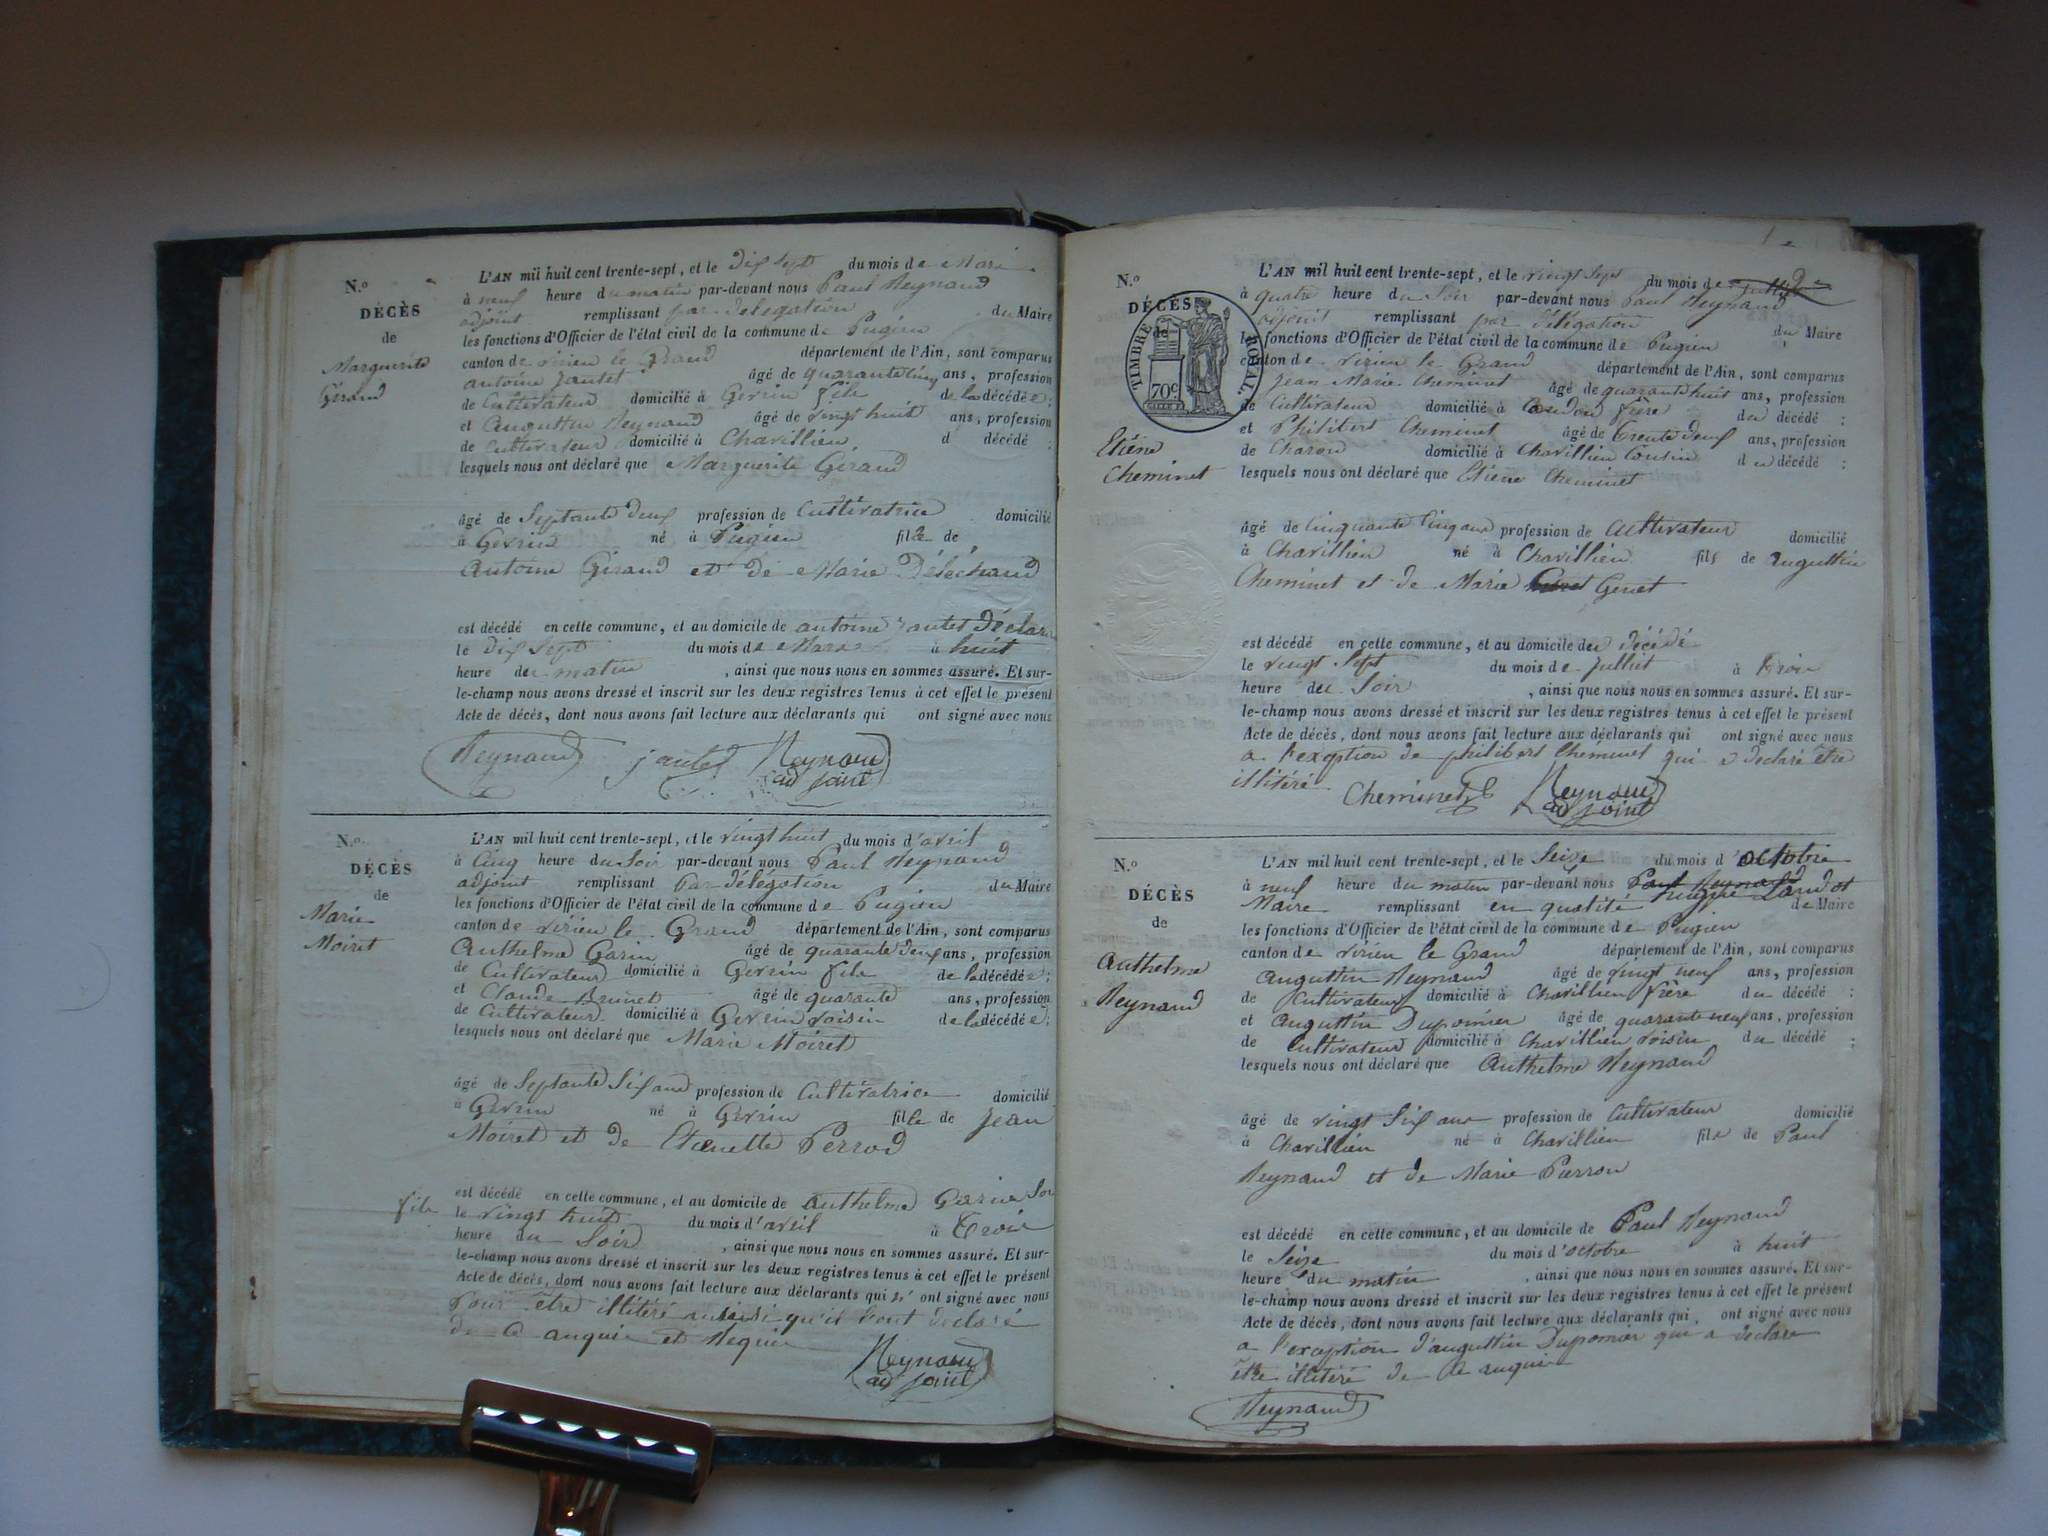 N.o
DÉCÈS
de
Marguerite
Géraud
L'AN mil huit cent trente-sept, et le dix sept du mois de Mars
à neuf heure du matin par-devant nous Paul Reynaud
adjoint remplissant par délégation du Maire
les fonctions d'Officier de l'état civil de la commune de Pugieu
canton de virieu le Grand département de l'Ain, sont comparus
antoine jantet âgé de quarante cinq ans, profession
de Cultivateur domicilié à Gevrin fils de la décédée ;
et Augustin Reynaud âgé de vingt huit ans, profession
de Cultivateur domicilié à Chavillieu d décédé ;
lesquels nous ont déclaré que Marguerite Géraud
âgé de Septante deux profession de Cultivatrice domicilié
à Gevrin né à Pugieu fille de
Antoine Géraud et de Marie Déléchaud
est décédé en cette commune, et au domicile de antoine jantet déclar
le dix Sept du mois de Mars à huit
heure du matin , ainsi que nous nous en sommes assuré. Et sur-
le-champ nous avons dressé et inscrit sur les deux registres tenus à cet effet le présent
Acte de décès, dont nous avons fait lecture aux déclarants qui ont signé avec nous
Reynaud jantet Reynaud
adjoint
N.o
DÉCÈS
de
Marie
Moiret
L'AN mil huit cent trente-sept, et le vingt huit du mois d'avril
à Cinq heure du Soir par-devant nous Paul Reynaud
adjoint remplissant Par délégation du Maire
les fonctions d'Officier de l'état civil de la commune de Pugieu
canton de virieu le Grand département de l'Ain, sont comparus
Anthelme Garin âgé de quarante deux ans, profession
de Cultivateur domicilié à Gevrin fils de la décédée ;
et Claude Brunet âgé de quarante ans, profession
de Cultivateur domicilié à Gevrin voisin de la décédée ;
lesquels nous ont déclaré que Marie Moiret
âgé de Septante Six ans profession de Cultivatrice domicilié
à Gevrin né à Gevrin fille de jean
Moiret et de Etienette Perrod
est décédé en cette commune, et au domicile de anthelme Garin Son
fils le vingt huit du mois d'avril à Trois
heure du Soir , ainsi que nous nous en sommes assuré. Et sur-
le-champ nous avons dressé et inscrit sur les deux registres tenus à cet effet le présent
Acte de décès, dont nous avons fait lecture aux déclarants qui n' ont signé avec nous
Pour être illitéré ainsi qu'il l'ont déclaré
de ce anquis et Requis
Reynaud
adjoint
N.o
DÉCÈS
de
TIMBRE ROYAL.
70c
Etiéne
Cheminet
L'AN mil huit cent trente-sept, et le vingt Sept du mois de juillet
à quatre heure du Soir par-devant nous Paul Reynaud
adjoint remplissant par délégation du Maire
les fonctions d'Officier de l'état civil de la commune de Pugieu
canton de virieu le Grand département de l'Ain, sont comparus
Jean Marie Cheminet âgé de quarante huit ans, profession
de Cultivateur domicilié à frère du décédé ;
et Philibert Cheminet âgé de trente deux ans, profession
de Charon domicilié à Chavillieu Cousin du décédé ;
lesquels nous ont déclaré que Etiéne Cheminet
âgé de Cinquante Cinq ans profession de Cultivateur domicilié
à Chavillieu né à Chavillieu fils de augustin
Cheminet et de Marie Genet
est décédé en cette commune, et au domicile du décédé
le vingt Sept du mois de juillet à trois
heure du Soir , ainsi que nous nous en sommes assuré. Et sur-
le-champ nous avons dressé et inscrit sur les deux registres tenus à cet effet le présent
Acte de décès, dont nous avons fait lecture aux déclarants qui ont signé avec nous
a l'exeption de philibert Cheminet qui a déclaré être
illitéré
Cheminet Reynaud
adjoint
N.o
DÉCÈS
de
Anthelme
Reynaud
L'AN mil huit cent trente-sept, et le Seize du mois d'octobre
à neuf heure du matin par-devant nous Paul Reynaud
Maire remplissant en qualité de Maire
les fonctions d'Officier de l'état civil de la commune de Pugieu
canton de virieu le Grand département de l'Ain, sont comparus
Augustin Reynaud âgé de vingt neuf ans, profession
de Cultivateur domicilié à Chavillieu frère du décédé ;
et Augustin Dupomier âgé de quarante neuf ans, profession
de Cultivateur domicilié à Chavillieu voisin du décédé ;
lesquels nous ont déclaré que Anthelme Reynaud
âgé de vingt Six ans profession de Cultivateur domicilié
à Chavillieu né à Chavillieu fils de Paul
Reynaud et de Marie Parrou
est décédé en cette commune, et au domicile de Paul Reynaud
le Seize du mois d'octobre à huit
heure du matin , ainsi que nous nous en sommes assuré. Et sur-
le-champ nous avons dressé et inscrit sur les deux registres tenus à cet effet le présent
Acte de décès, dont nous avons fait lecture aux déclarants qui ont signé avec nous
a l'exception d'augustin Dupomier qui a déclaré
être illitéré de ce anquis
Reynaud